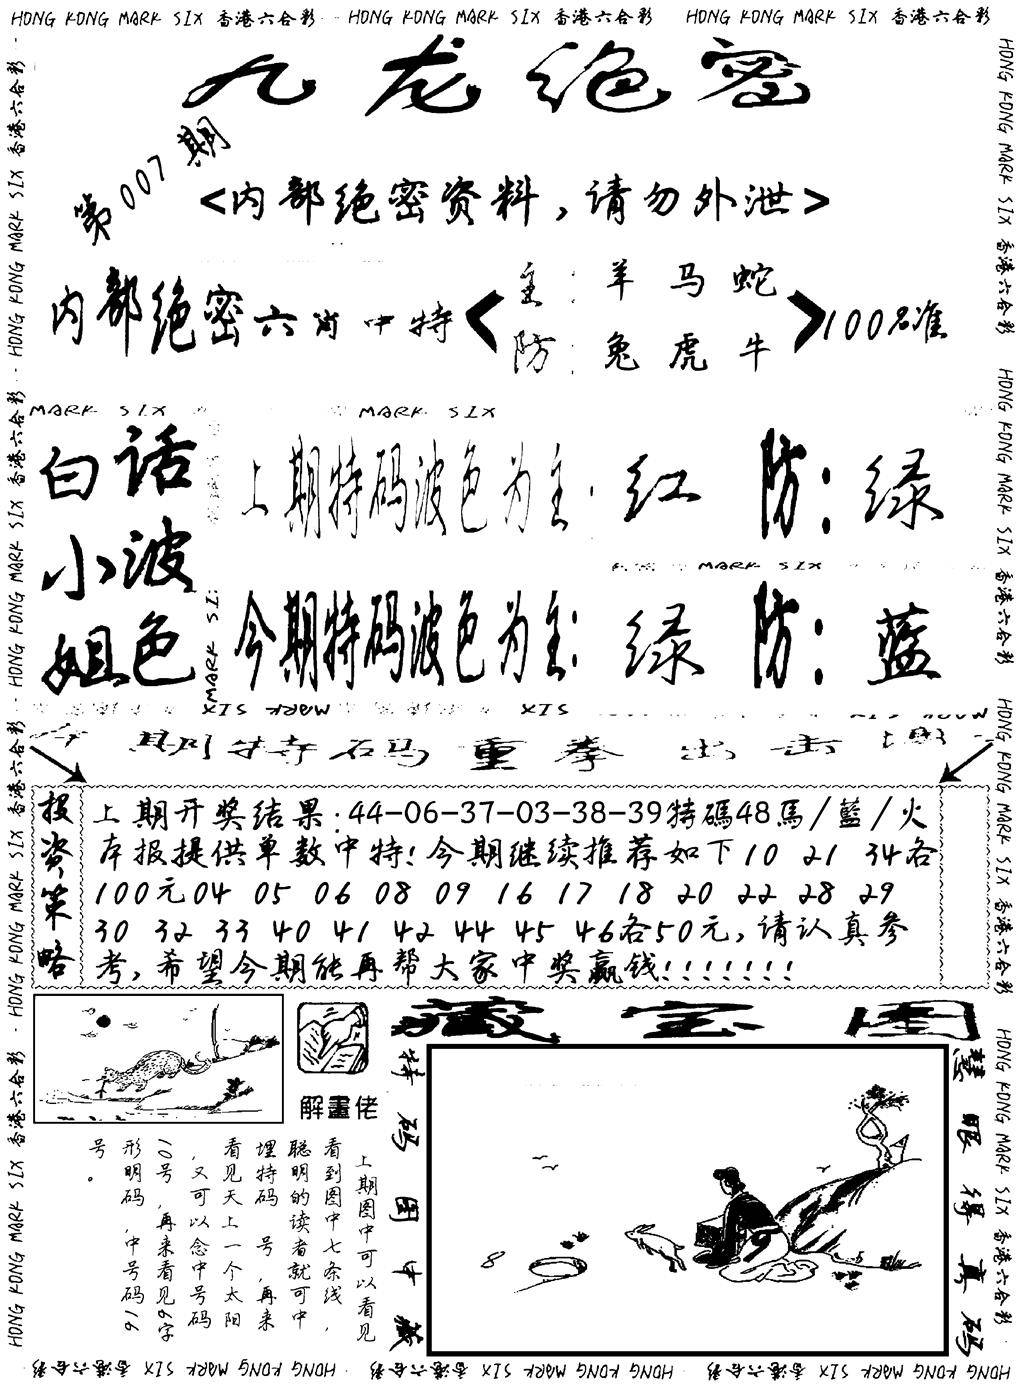 HONG KONG MARK SIX 香港六合彩 HONG KONG MARK SIX 香港六合彩 HONG KONG MARK SIX 香港六合彩
九龙绝密
第007期
<内部绝密资料，请勿外泄>
内部绝密六肖中特
主：羊 马 蛇
防：兔 虎 牛
100%准
MARK SIX MARK SIX
白话
小波
姐色
上期特码波色为主：红 防：绿
MARK SIX
今期特码波色为主：绿 防：蓝
MARK SIX
今期特码重拳出击
投资策略
上期开奖结果：44-06-37-03-38-39特碼48馬/藍/火
本报提供单数中特！今期继续推荐如下10 21 34各
100元04 05 06 08 09 16 17 18 20 22 28 29
30 32 33 40 41 42 44 45 46各50元，请认真参
考，希望今期能再帮大家中奖赢钱！！！！！！！
解畫佬
上期图中可以看见
看到图中七条线，
聪明的读者就可中
埋特码 号，再来
看见天上一个太阳
，又可以念中号码
10号，再来看见6字
形明码，中号码16
号。
藏宝图
特码图中藏
慧眼得真码
HONG KONG MARK SIX 香港六合彩 HONG KONG MARK SIX 香港六合彩 HONG KONG MARK SIX 香港六合彩